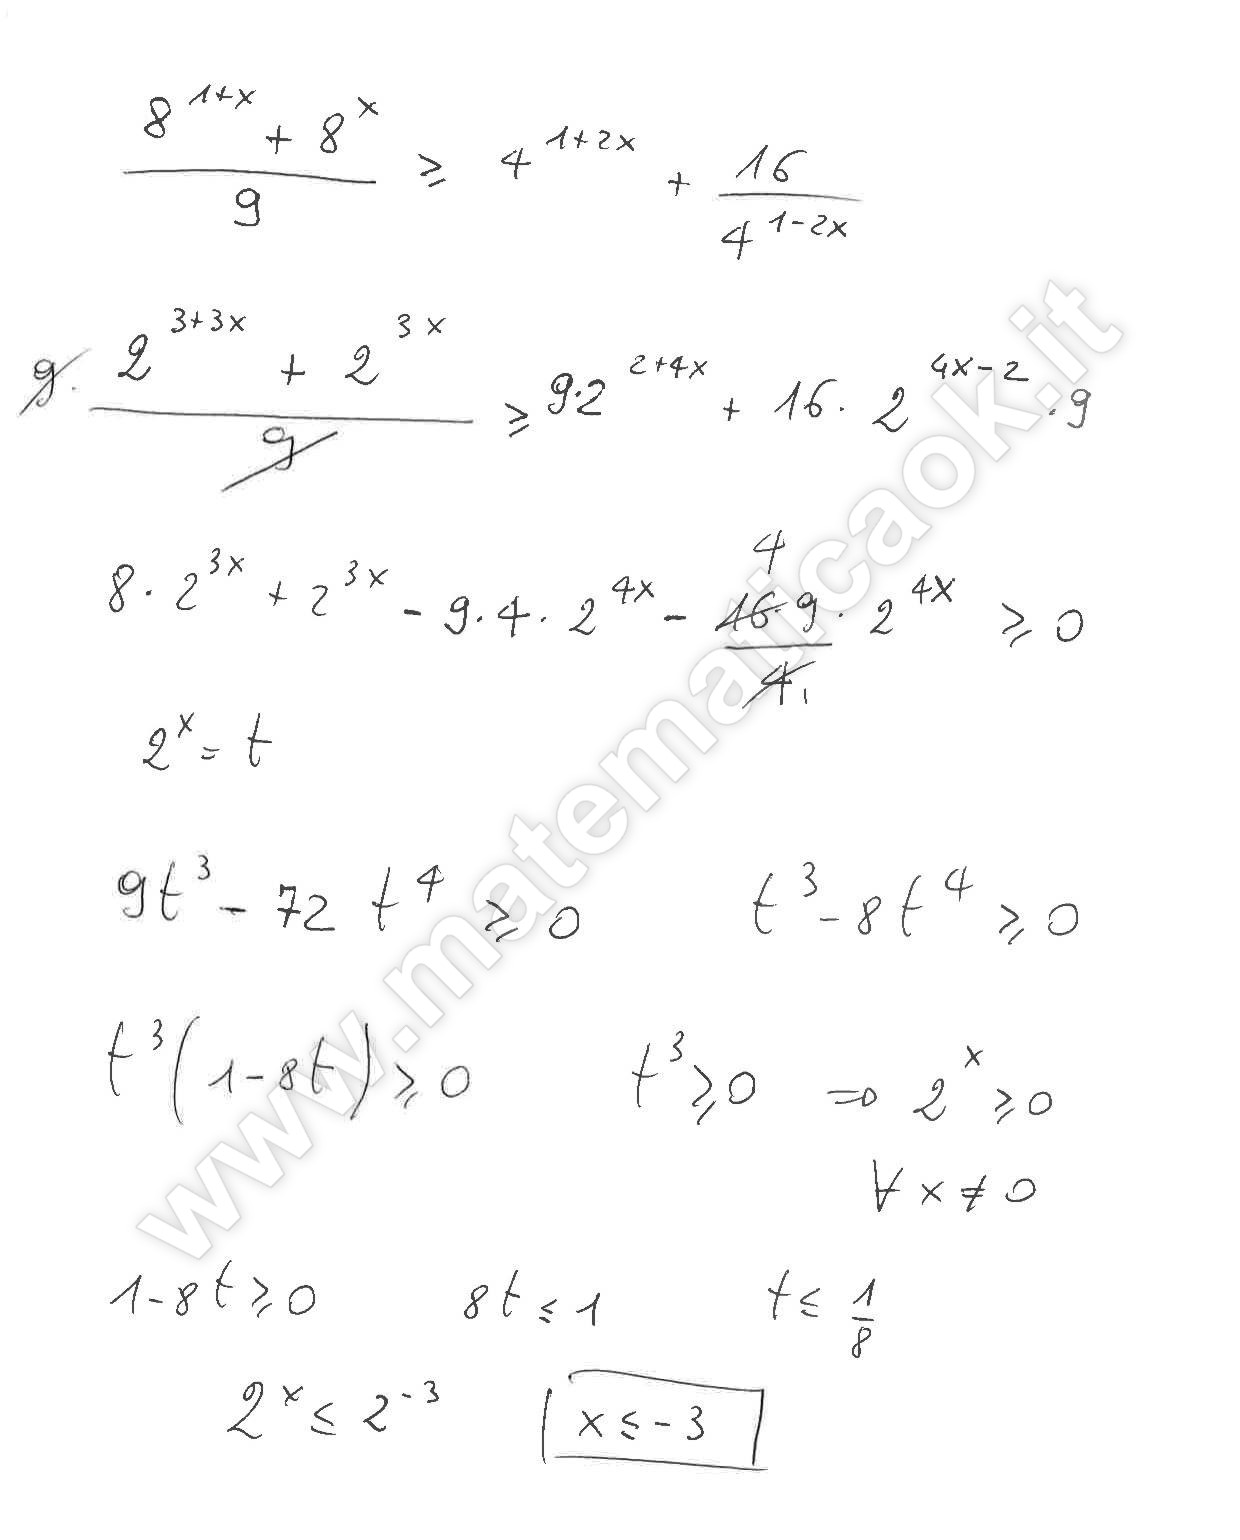 (8^(1+x) + 8^x) / 9 ≥ 4^(1+2x) + 16 / 4^(1-2x)
9 · (2^(3+3x) + 2^(3x)) / 9 ≥ 9·2^(2+4x) + 16 · 2^(4x-2) · 9
8 · 2^(3x) + 2^(3x) - 9 · 4 · 2^(4x) - 4 16·9 / 4 1 · 2^(4x) ≥ 0
2^x = t
9t^3 - 72 t^4 ≥ 0   t^3 - 8t^4 ≥ 0
t^3 (1-8t) ≥ 0   t^3 ≥ 0 ⇒ 2^x ≥ 0
∀ x ≠ 0
1-8t ≥ 0   8t ≤ 1   t ≤ 1/8
2^x ≤ 2^(-3)   x ≤ -3
www.matematicaok.it